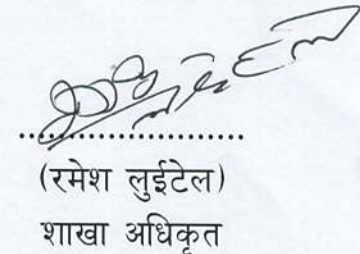 ........................
(रमेश लुईटेल)
शाखा अधिकृत